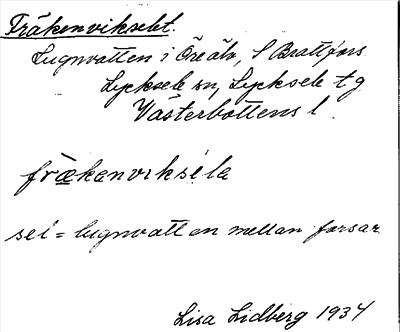 Fräkenvikselet.
Lugnvatten i Öreälv, S Brattfors
Lycksele sn, Lycksele tg
Västerbottens l.
fräkanviksela
sel = lugnvatten mellan forsar
Lisa Lidberg 1934